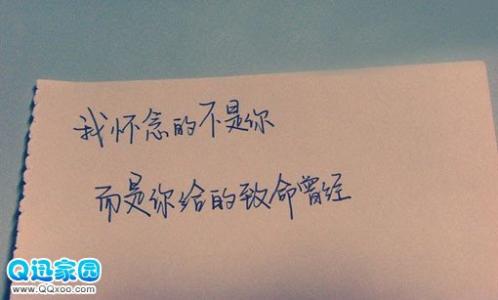 我怀念的不是你
而是你给的致命曾经
Q迅家园
www.QQxoo.com